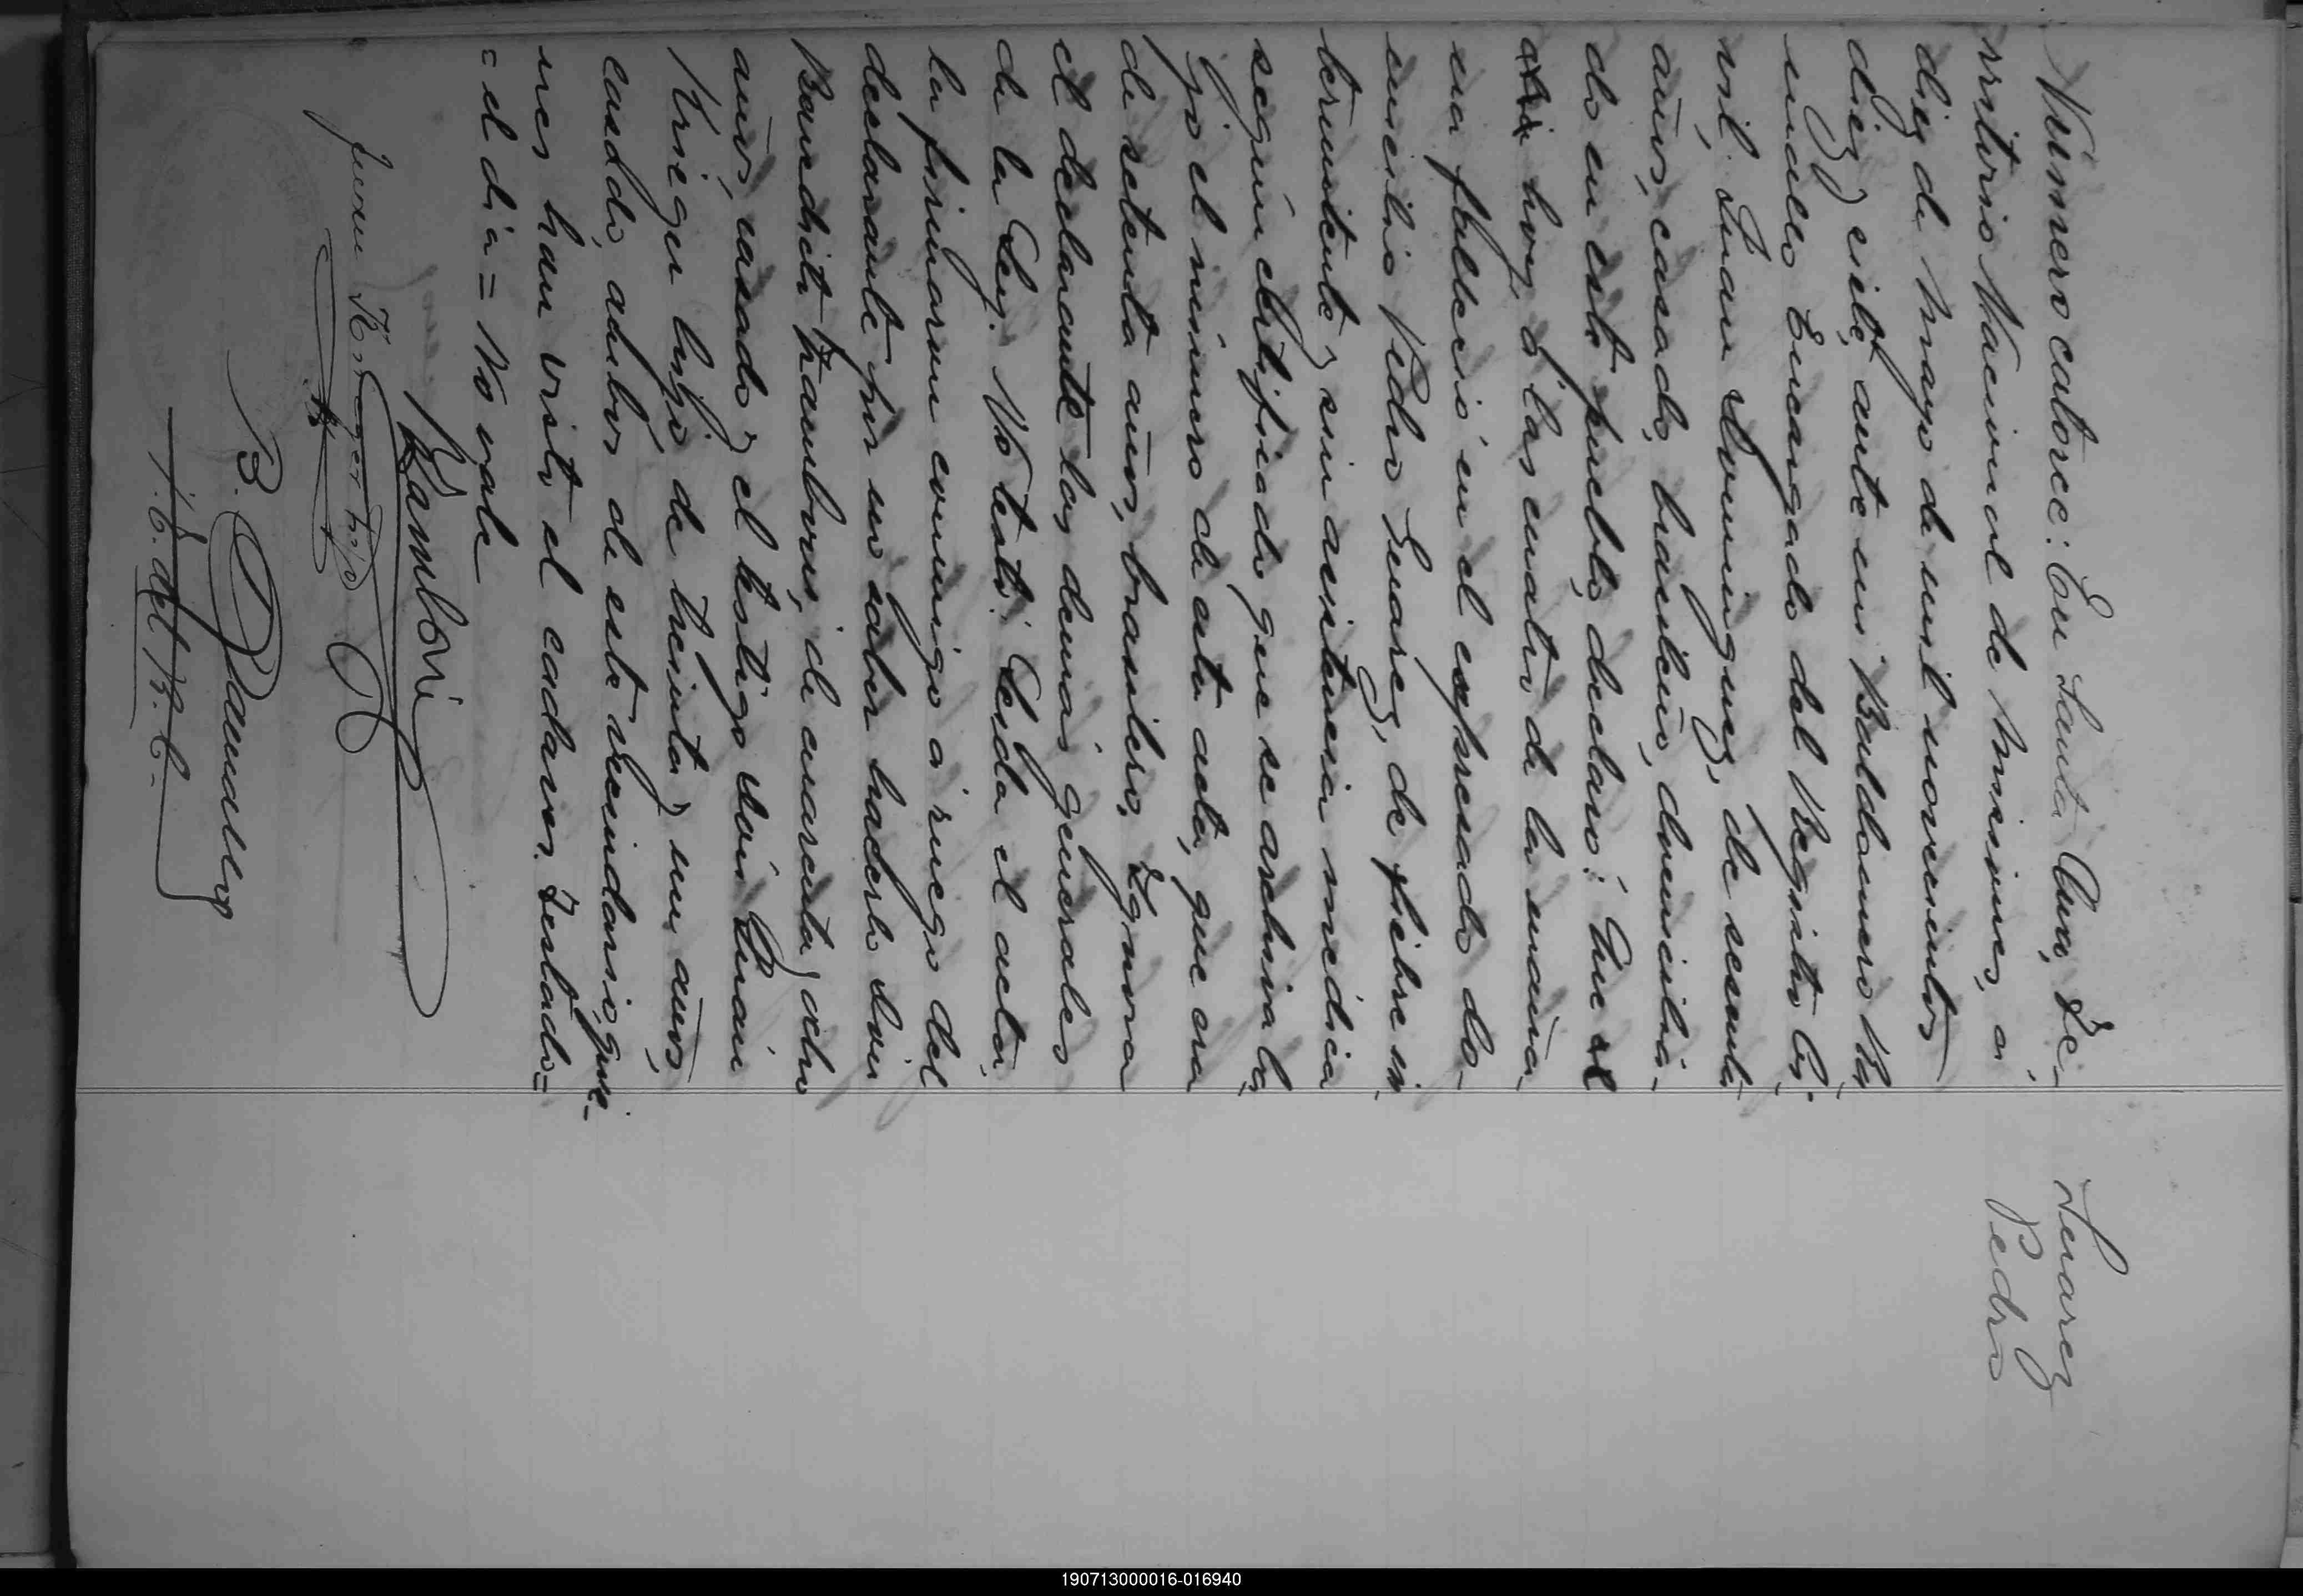 Número catorce: En Santa Ana, Te-
rritorio Nacional de Misiones, á
diez de Mayo de mil novecientos
diez y siete, ante mi Baldomero
Encargado del Registro Ci-
vil, Juan Dominguez, de sesenta
años, casado, brasileño, domicilia-
do en este pueblo, declaró: Que el
dia hoy, á las cuatro de la maña-
na falleció en el expresado do-
micilio Pedro Suarez, de fiebre in
termitente y sin asistencia médica
según certificado que se archiva ba
jo el número de esta acta, que era
de setenta años, brasilero. Ignora
el declarante las demás generales
de la Ley. No testó. Leida el acta,
la firmaron conmigo á ruego del
declarante por no saber hacerlo don
Bautista Kamlovsi, de cuarenta y ocho
años, casado y el testigo don Juan
Krieger hijo, de treinta y un, años,
casado, ambos de este vecindario, quie-
nes han visto el cadaver. Testado=
= el dia = No vale
Juan Krieger hijo
J. E. del R. C.
Suarez
Pedro
190713000016-016940